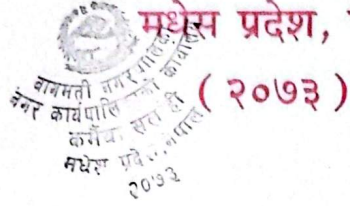 मधेस प्रदेश,
( २०७३ )
बागमती नगरपालिका
नगर कार्यपालिकाको कार्यालय
मधेश प्रदेश, नेपाल
२०७३